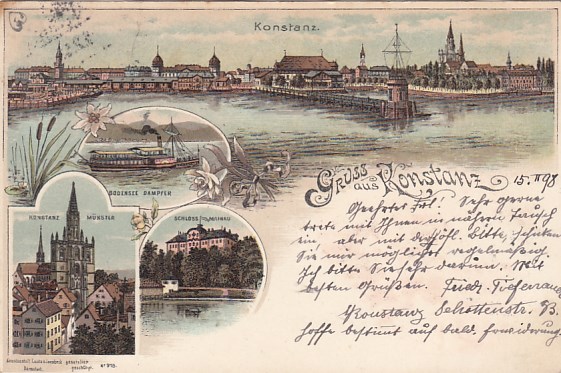 Konstanz.
BODENSEE DAMPFER
KONSTANZ MÜNSTER
SCHLOSS MAINAU
Gruss aus Konstanz
15. II 98
Geehrter Frl! Sehr gerne
trete mit Ihnen in nähern Tausch
ein, aber mit der höfl. bitte, schicken
Sie nur möglichst regelmäßig.
Ich bitte Sie sehr darum. Mit
besten Grüßen. Friedr.
Konstanz Schottenstr.
hoffe bestimmt auf bald. Erwiderung.